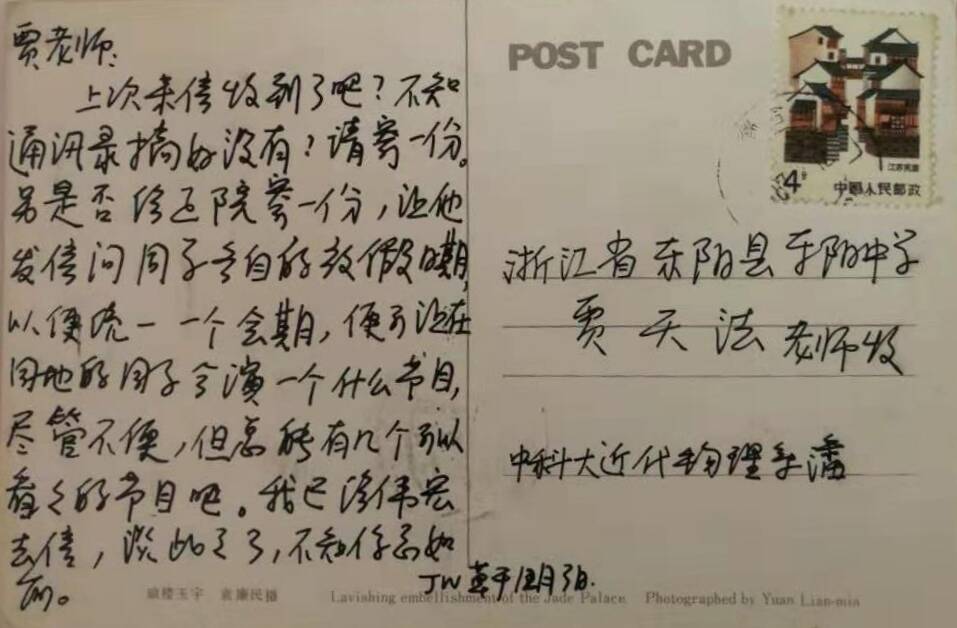 贾老师:
上次来信收到了吧?不知
通讯录搞好没有?请寄一份。
另是否给
院寄一份,让他
发信问同学各自的放假日期,
以便统一一个会期,便可让在
同地的同学合演一个什么节目,
尽管不便,但总能有几个可以
看看的节目吧。我已给伟宏
去信,谈此
了,不知你意如
何。
JW
12月3日.
POST CARD
4分
江苏民居
中国人民邮政
浙江省东阳县东阳中学
贾天法老师收
中科大近代物理系潘
琼楼玉宇 袁廉民摄
Lavishing embellishment of the Jade Palace Photographed by Yuan Lian-min